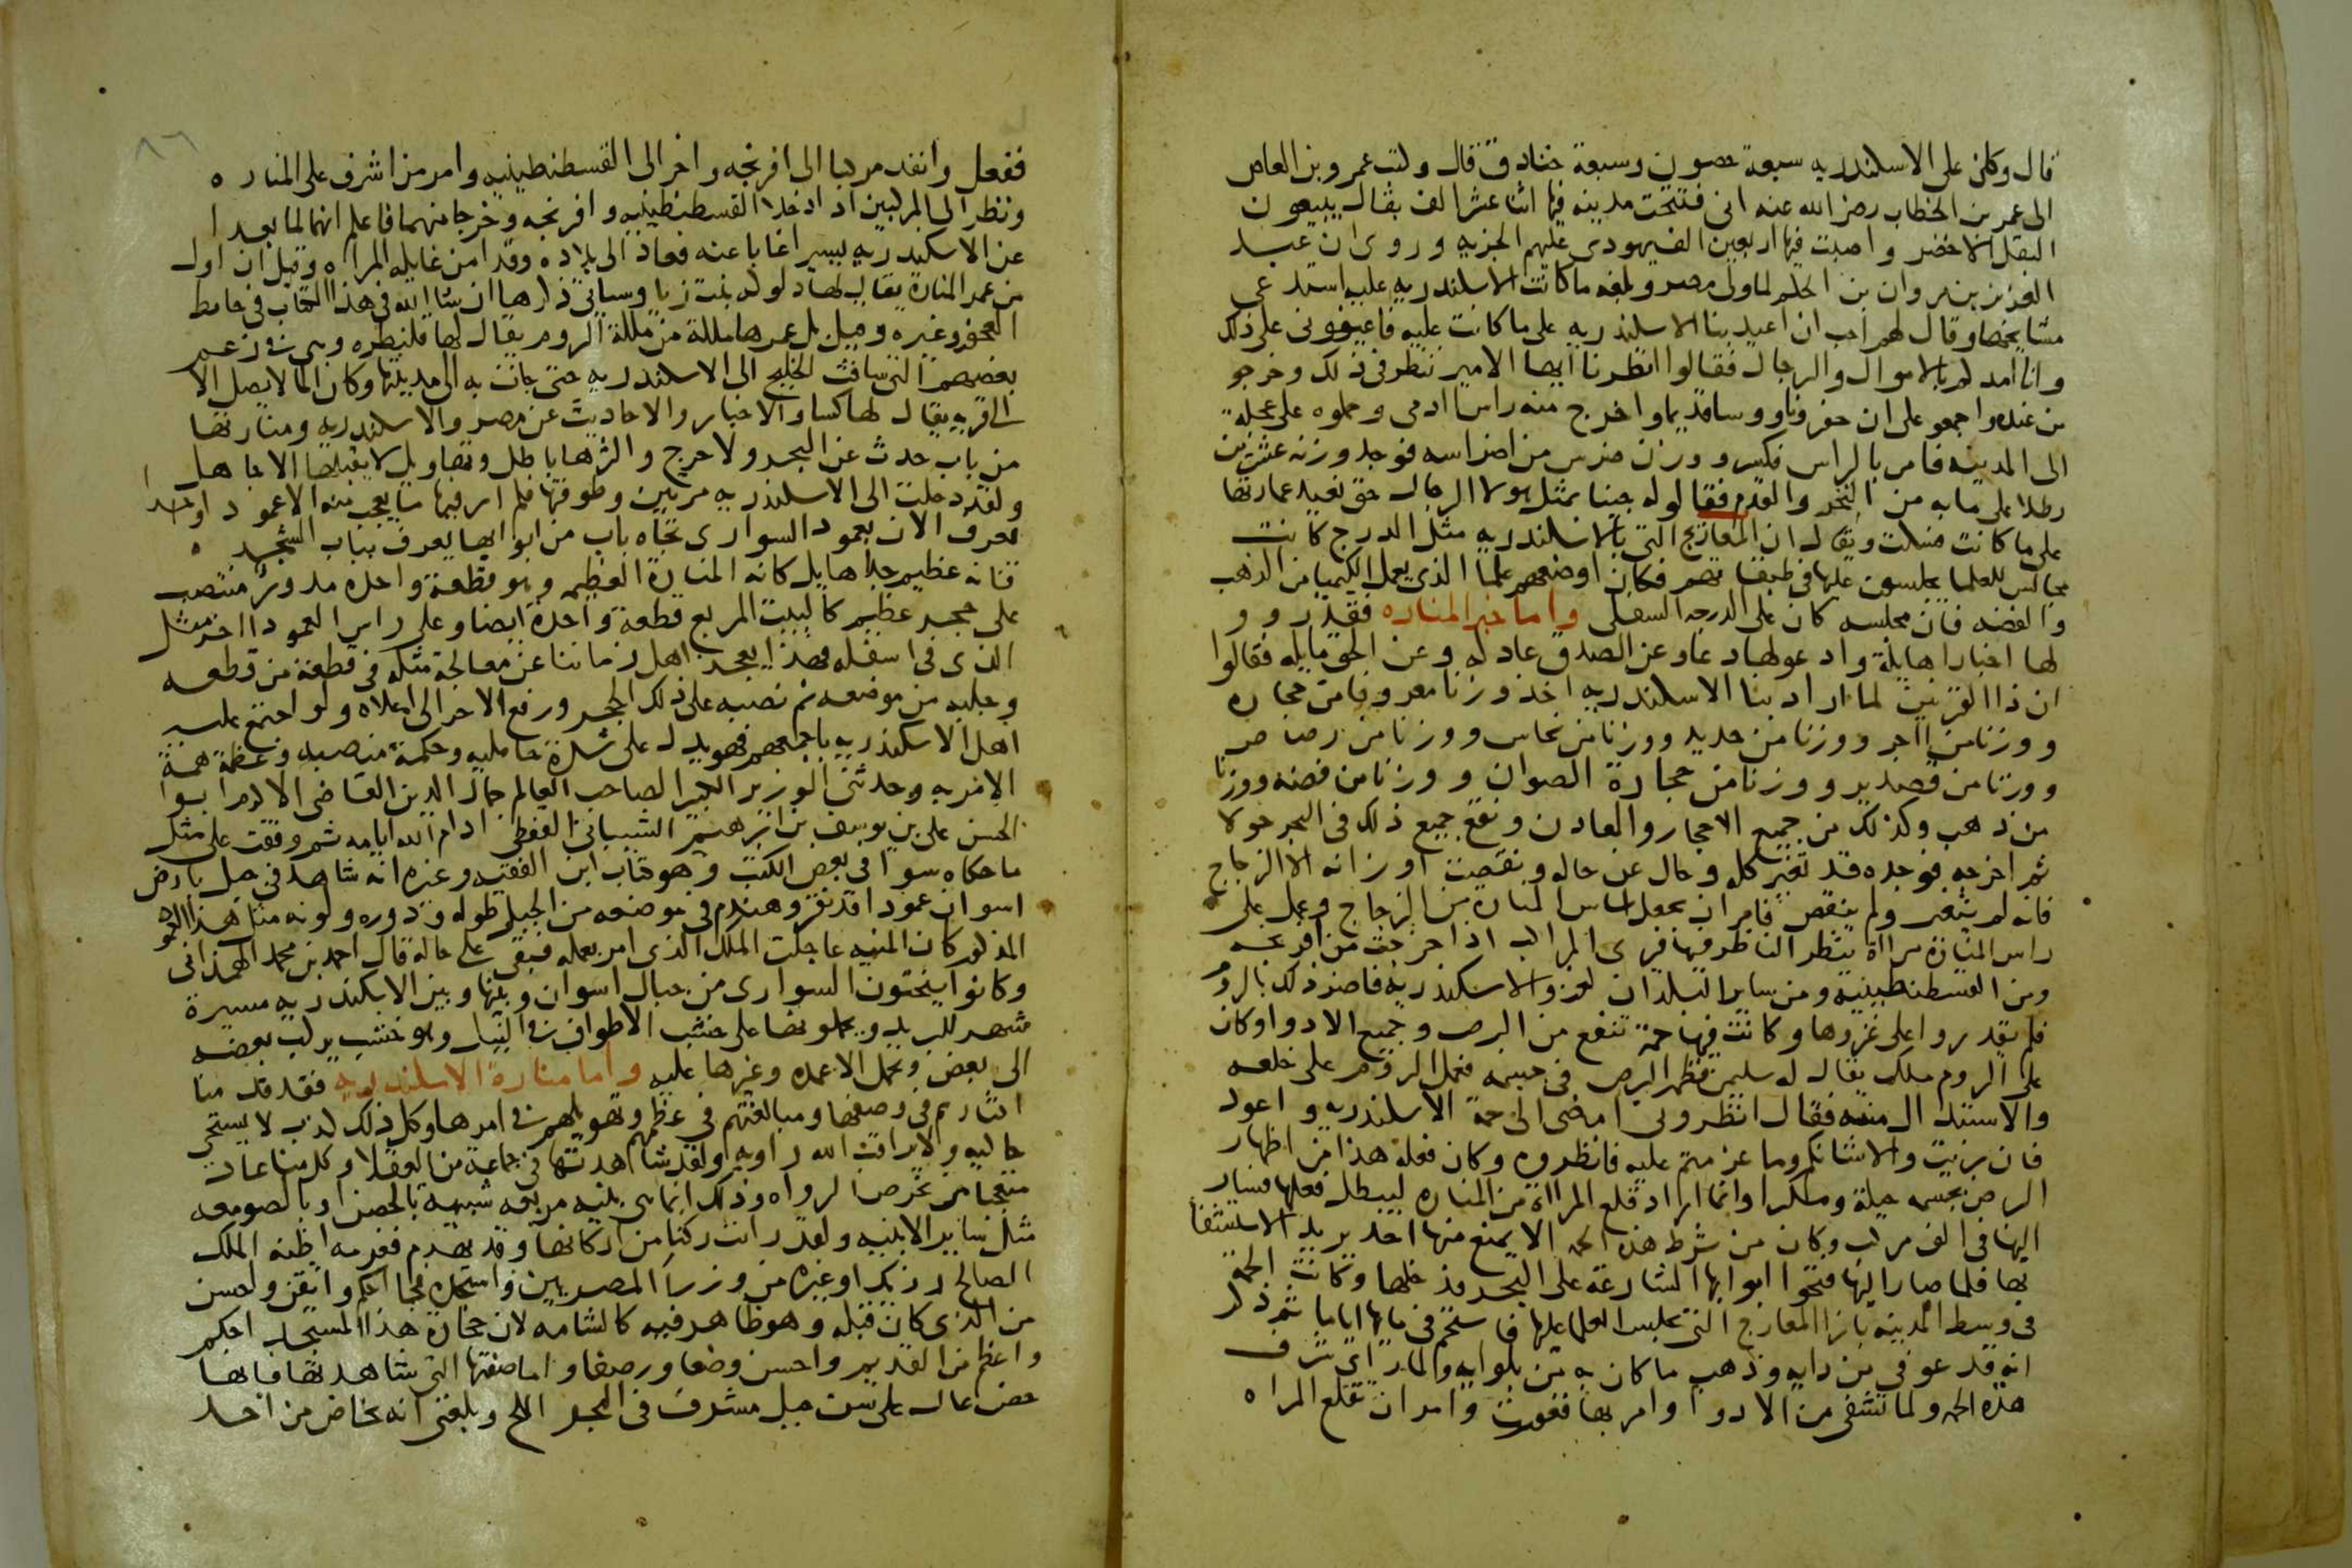 قال وكان على الاسكندريه سبعة حصون وسبعة خنادق قال وكتب عمرو بن العاص
الى عمر بن الخطاب رضى الله عنه انى فتحت مدينه فيها اثنا عشر الف بقال يبيعون
البقل الاخضر واصبت فيها اربعين الف يهودى عليهم الجزيه وروى ان عبد
العزيز بن مروان بن الحكم لما ولى مصر وبلغه ما كانت الاسكندريه عليه استدعى
مشايخها وقال لهم احب ان اعيد بنا الاسكندريه على ما كانت عليه فاعينونى على ذلك
وانا امدكم بالاموال والرجال فقالوا انظرنا ايها الامير ننظر فى ذلك وخرجو
من عنده واجمعو على ان حفرو ناووسا قديما واخرج منه راس ادمى وحملوه على عجلة
الى المدينه فامر بالراس فكسر ووزن ضرس من اضراسه فوجد وزنه عشرين
رطلا على ما به من النخر والقدم فقالوله جينا بمثل هولا الرجال حتى نعيد عمارتها
على ما كانت فسكت ويقال ان المعاريج التى بالاسكندريه مثل الدرج كانت
مجالس للعلما يجلسون عليها فى طبقاتهم فكان اوضعهم علما الذى يعمل الكيميا من الذهب
والفضه فان مجلسه كان على الدرجه السفلى واما خبر المناره فقد رووو
لها اخبارا هايلة وادعو لها دعاو عن الصدق عادله وعن الحق مايله فقالوا
ان ذا القرنين لما اراد بنا الاسكندريه اخذ وزنا معروفا من حجاره
ووزنا من اجر ووزنا من حديد ووزنا من نحاس ووزنا من رصاص
ووزنا من قصدير ووزنا من حجارة الصوان ووزنا من فضه ووزنا
من ذهب وكذلك من جميع الاحجار والمعادن ونقع جميع ذلك فى البحر حولا
ثم اخرجه فوجده قد تغير كله وحال عن حاله ونقصت اوزانه الا الزجاج
فانه لم يتغير ولم ينقص فامر ان يجعل اساس المناره من الزجاج وعمل على
راس المنارة مراة ينظر الناظر فيها فيرى المراكب اذا خرجت من افرنجه
ومن القسطنطينيه ومن ساير البلدان لغزو الاسكندريه فاضر ذلك بالروم
فلم يقدروا على غزوها وكانت فيها حمة تنفع من البرص وجميع الادوا وكان
على الروم ملك يقال له سليمن فظهر البرص فى جسمه فعمل الروم على خلعه
والاستبدال منه فقال انظرونى امضى الى حمة الاسكندريه واعود
فان بريت والا شانكم وما عزمتم عليه فانظروه وكان فعله هذا من اظهار
البرص بجسمه حيلة ومكرا وانما اراد قلع المرااة من المناره ليبطل فعلها فسار
اليها فى الف مركب وكان من شرط هذه الحمه الا يمنع منها احد يريد الاستشفا
بها فلما صار اليها فتحوا ابوابها الشارعة على البحر فدخلها وكانت الحمة
فى وسط المدينه بازا المعارج التى تجلس العلما عليها فاستحم فى مايها اياما ثم ذكر
انه قد عوفى من دايه وذهب ما كان به من بلوايه ولما راى شرف
هذه الحمه وما تشفى من الادوا وامر بها فغورت وامر ان تقلع المراه
ففعل وانفد مركبا الى افرنجه واخر الى القسطنطينيه وامر من اشرف على المناره
ونظر الى المركبين اذا دخلا القسطنطينيه وافرنجه وخرجا منهما فاعلم انهما لما بعدا
عن الاسكندريه بيسير اغابا عنه فعاد الى بلاده وقد امن غايله المراه وقيل ان اول
من عمر المنارة يقال لها دلوكه بنت زبا وسياتى ذكرها ان شا الله فى هذا الكتاب فى حايط
العجوز وغيره وقيل بل عمرها ملكة من ملكة الروم يقال لها قلبطره وهى فى زعم
بعضهم التى ساقت الخليج الى الاسكندريه حتى جات به الى مدينتها وكان الما لا يصل الا
الى قريه يقال لها كسا والاخبار والاحاديث عن مصر والاسكندريه ومنارتها
من باب حدث عن البحر ولا حرج واكثرها باطل وتهاويل لا يقبلها الا جاهل
ولقد دخلت الى الاسكندريه مرتين وطوفتها فلم ار فيها ما يعجب منه الا عمودا واحدا
يعرف الان بعمود السوارى تجاه باب من ابوابها يعرف بباب الشجره
فانه عظيم جدا هايل كانه المنارة العظيمه وهو قطعة واحده مدور منتصب
على حجر عظيم كالبيت المربع قطعة واحدة ايضا وعلى راس العمود اخر مثل
الذى فى اسفله فهذا يعجز اهل زماننا عن معالجة مثله فى قطعه من قطعه
وجلبه من موضعه ثم نصبه على ذلك الحجر ورفع الاخر الى اعلاه ولو اجتمع عليه
اهل الاسكندريه باجمعهم فهو يدل على شدة حامليه وحكمة منصبيه وعظمة همة
الامر به وحدثنى الوزير الكبير الصاحب العالم جمال الدين القاضى الاكرم ابوا
الحسن على بن يوسف بن ابرهيم الشيبانى القفطى ادام الله ايامه ثم وقفت على مثل
ما حكاه سوا فى بعض الكتب وهو كتاب ابن الفقيه وغيره انه شاهد فى جبل بارض
اسوان عمودا قد نقر وهندم فى موضعه من الجبل طوله ودوره ولونه مثل هذا العمو
المذكور كان المنيه عاجلت الملك الذى امر بعمله فبقى على حاله قال احمد بن محمد الهمذانى
وكانوا ينحتون السوارى من جبال اسوان وبينها وبين الاسكندريه مسيرة
شهر للبريد ويحملونها على خشب الاطواف فى النيل وهو خشب يركب بعضه
الى بعض وتحمل الاعمده وغيرها عليه واما منارة الاسكندريه فقد قدمنا
اكثارهم فى وصفها ومبالغتهم فى عظمها وتهويلهم فى امرها وكل ذلك كذب لا يستحى
حاكيه ولا يراقب الله راويه ولقد شاهدتها فى جماعة من العقلا وكل منا عاد
متعجبا من تخرص الرواه وذلك انما هى بنيه مربعه شبيهة بالحصن او بالصومعه
مثل ساير الابنيه ولقد رايت ركنا من اركانها وقد تهدم فغرمه اظنه الملك
الصالح رزيك او غيره من وزرا المصريين واستجده فجا احكم واتقن واحسن
من الذى كان قبله وهو ظاهر فيه كالشامه لان حجارة هذا المستجد احكم
واعظم من القديم واحسن وضعا ورصفا واما صفتها التى شاهدتها فانها
حصن عال على سن جبل مشرف فى البحر الملح وبلغنى انه يخاض من احد